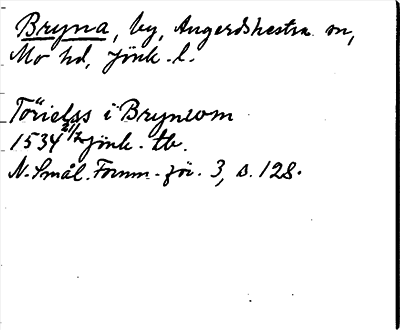 Bryna, by, Angerdshestra sn,
Mo hd, Jönk. l.
Törielss i Brynom
1534 21/2 Jönk. tb.
N. Smål. Fornm.för. 3, s. 128.